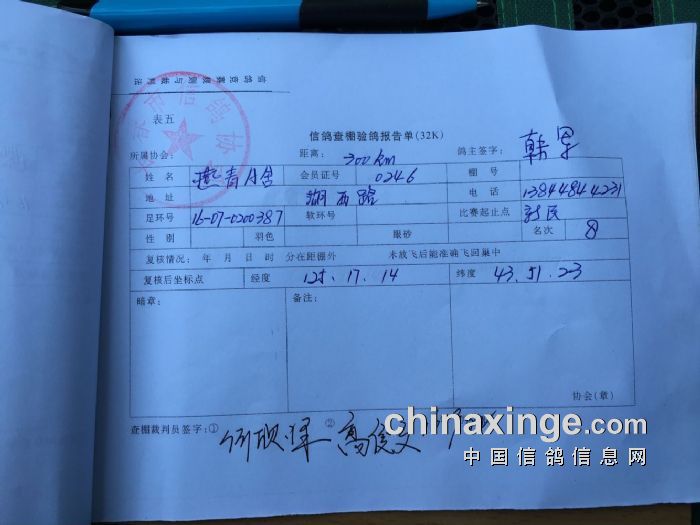 信鸽竞赛规则与裁判法
市信鸽协
表五
信鸽查棚验鸽报告单(32K)
所属协会: 距离: 300km 鸽主签字: 韩军
姓名 燕青鸽舍 会员证号 0246 棚号
地址 湖西路 电话 13844844231
足环号 16-07-0200387 软环号 比赛起止点 新民
性别 羽色 眼砂 名次 8
复核情况: 年 月 日 时 分在距棚外 未放飞后能准确飞回巢中
复核后坐标点 经度 125.17.14 纬度 43.51.23
暗章: 备注:
协会(章)
查棚裁判员签字:① ② 高俊文
chinaxinge.com
中国信鸽信息网